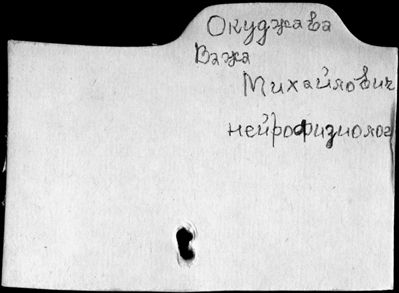 Окуджава
Важа
Михайлович
нейрофизиолог